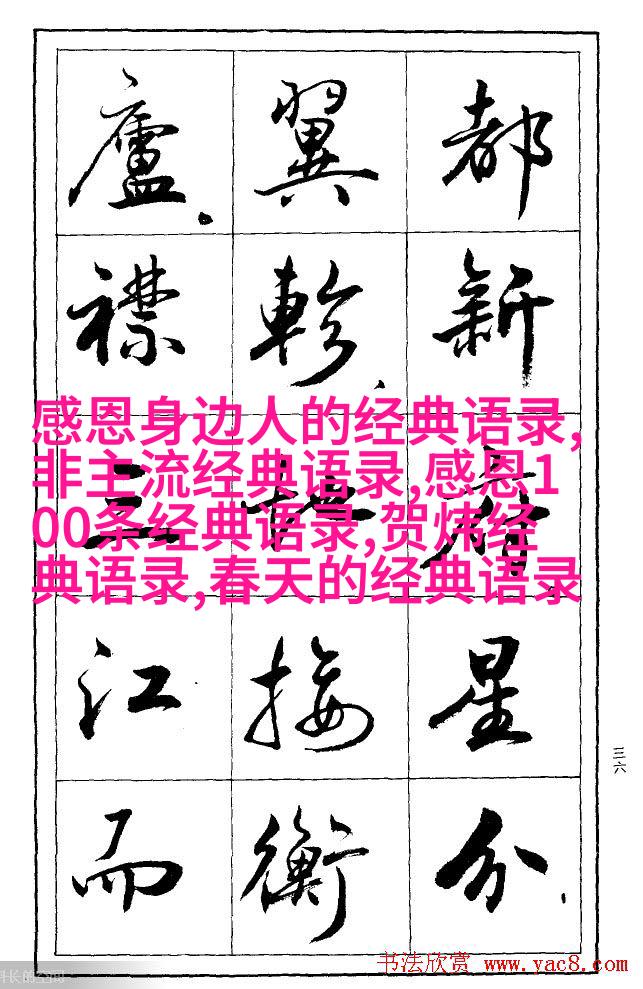 都新星分
翼軫、地接衡
廬。襟三江而
感恩身边人的经典语录,
非主流经典语录,感恩1
00条经典语录,贺炜经
典语录,春天的经典语录
三六
长的空间
书法欣赏 www.yac8.com